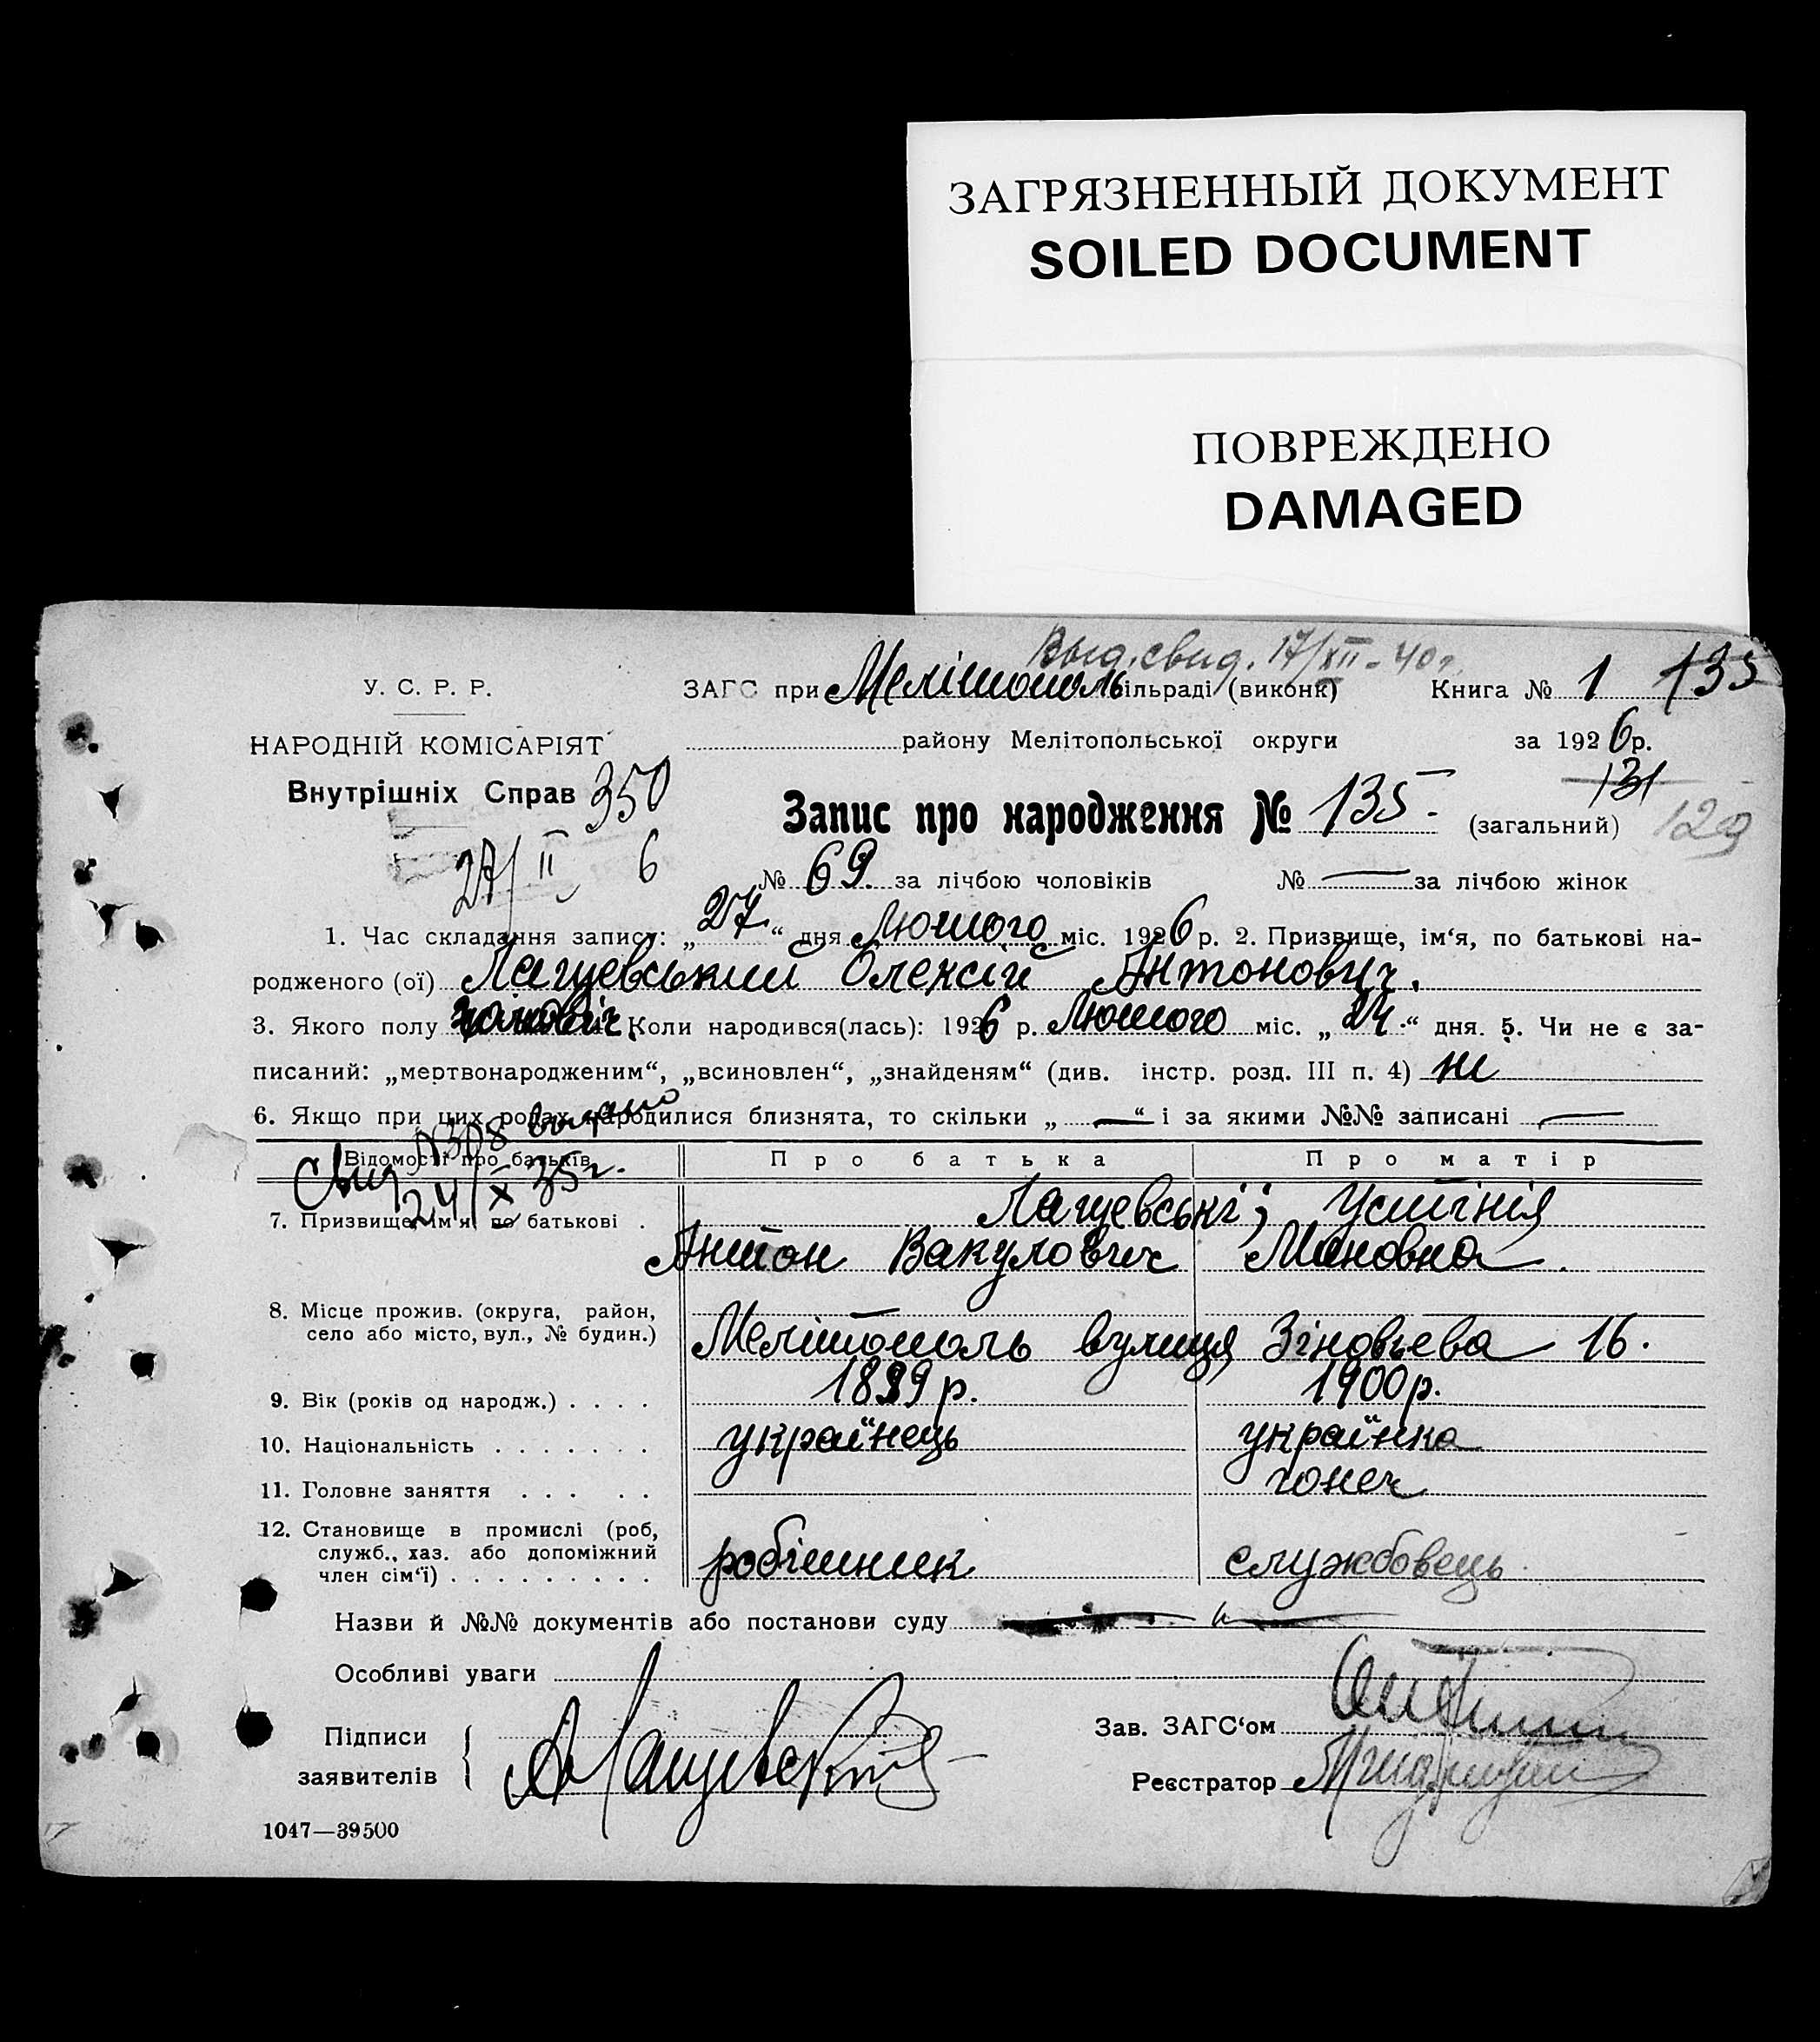 ЗАГРЯЗНЕННЫЙ ДОКУМЕНТ
SOILED DOCUMENT
ПОВРЕЖДЕНО
DAMAGED
Выд. свид. 17/XII-40г.
У. С. Р. Р. ЗАГС при Мелітополь ільраді (виконк) Книга № 1 135
НАРОДНІЙ КОМІСАРІЯТ району Мелітопольської округи за 1926 р.
Внутрішніх Справ 350 131
Запис про народження № 135 - (загальний) 129
27/II 6 № 69 за лічбою чоловіків № — за лічбою жінок
1. Час складання запису: „27“ дня Лютого міс. 1926 р. 2. Призвище, ім‘я, по батькові на-
родженого (ої) Лащевський Олексій Антонович.
3. Якого полу чоловіч. Коли народився(лась): 1926 р. Лютого міс. „24“ дня. 5. Чи не є за-
писаний: „мертвонародженим“, „всиновлен“, „знайденям“ (див. інстр. розд. III п. 4) ні
6. Якщо при цих родах народилися близнята, то скільки „—“ і за якими №№ записані —
Свид N308 выдано
24/X 35г.
Відомості про батьків Про батька Про матір
7. Призвище, ім‘я по батькові . Лащевські; Устінія
Антон Вакулович Мановна.
8. Місце прожив. (округа, район,
село або місто, вул., № будин.) Мелітополь вулиця Зіновьева 16.
9. Вік (років од народж.) . . . . 1899 р. 1900 р.
10. Національність . . . . . . . українець українка
11. Головне заняття . . . . .
12. Становище в промислі (роб,
служб., хаз. або допоміжний
член сім‘ї) . . . . . . . . . робітник службовець
Назви й №№ документів або постанови суду
Особливі уваги
Підписи Зав. ЗАГС‘ом
заявителів { А Лащевский Реєстратор
1047—39500